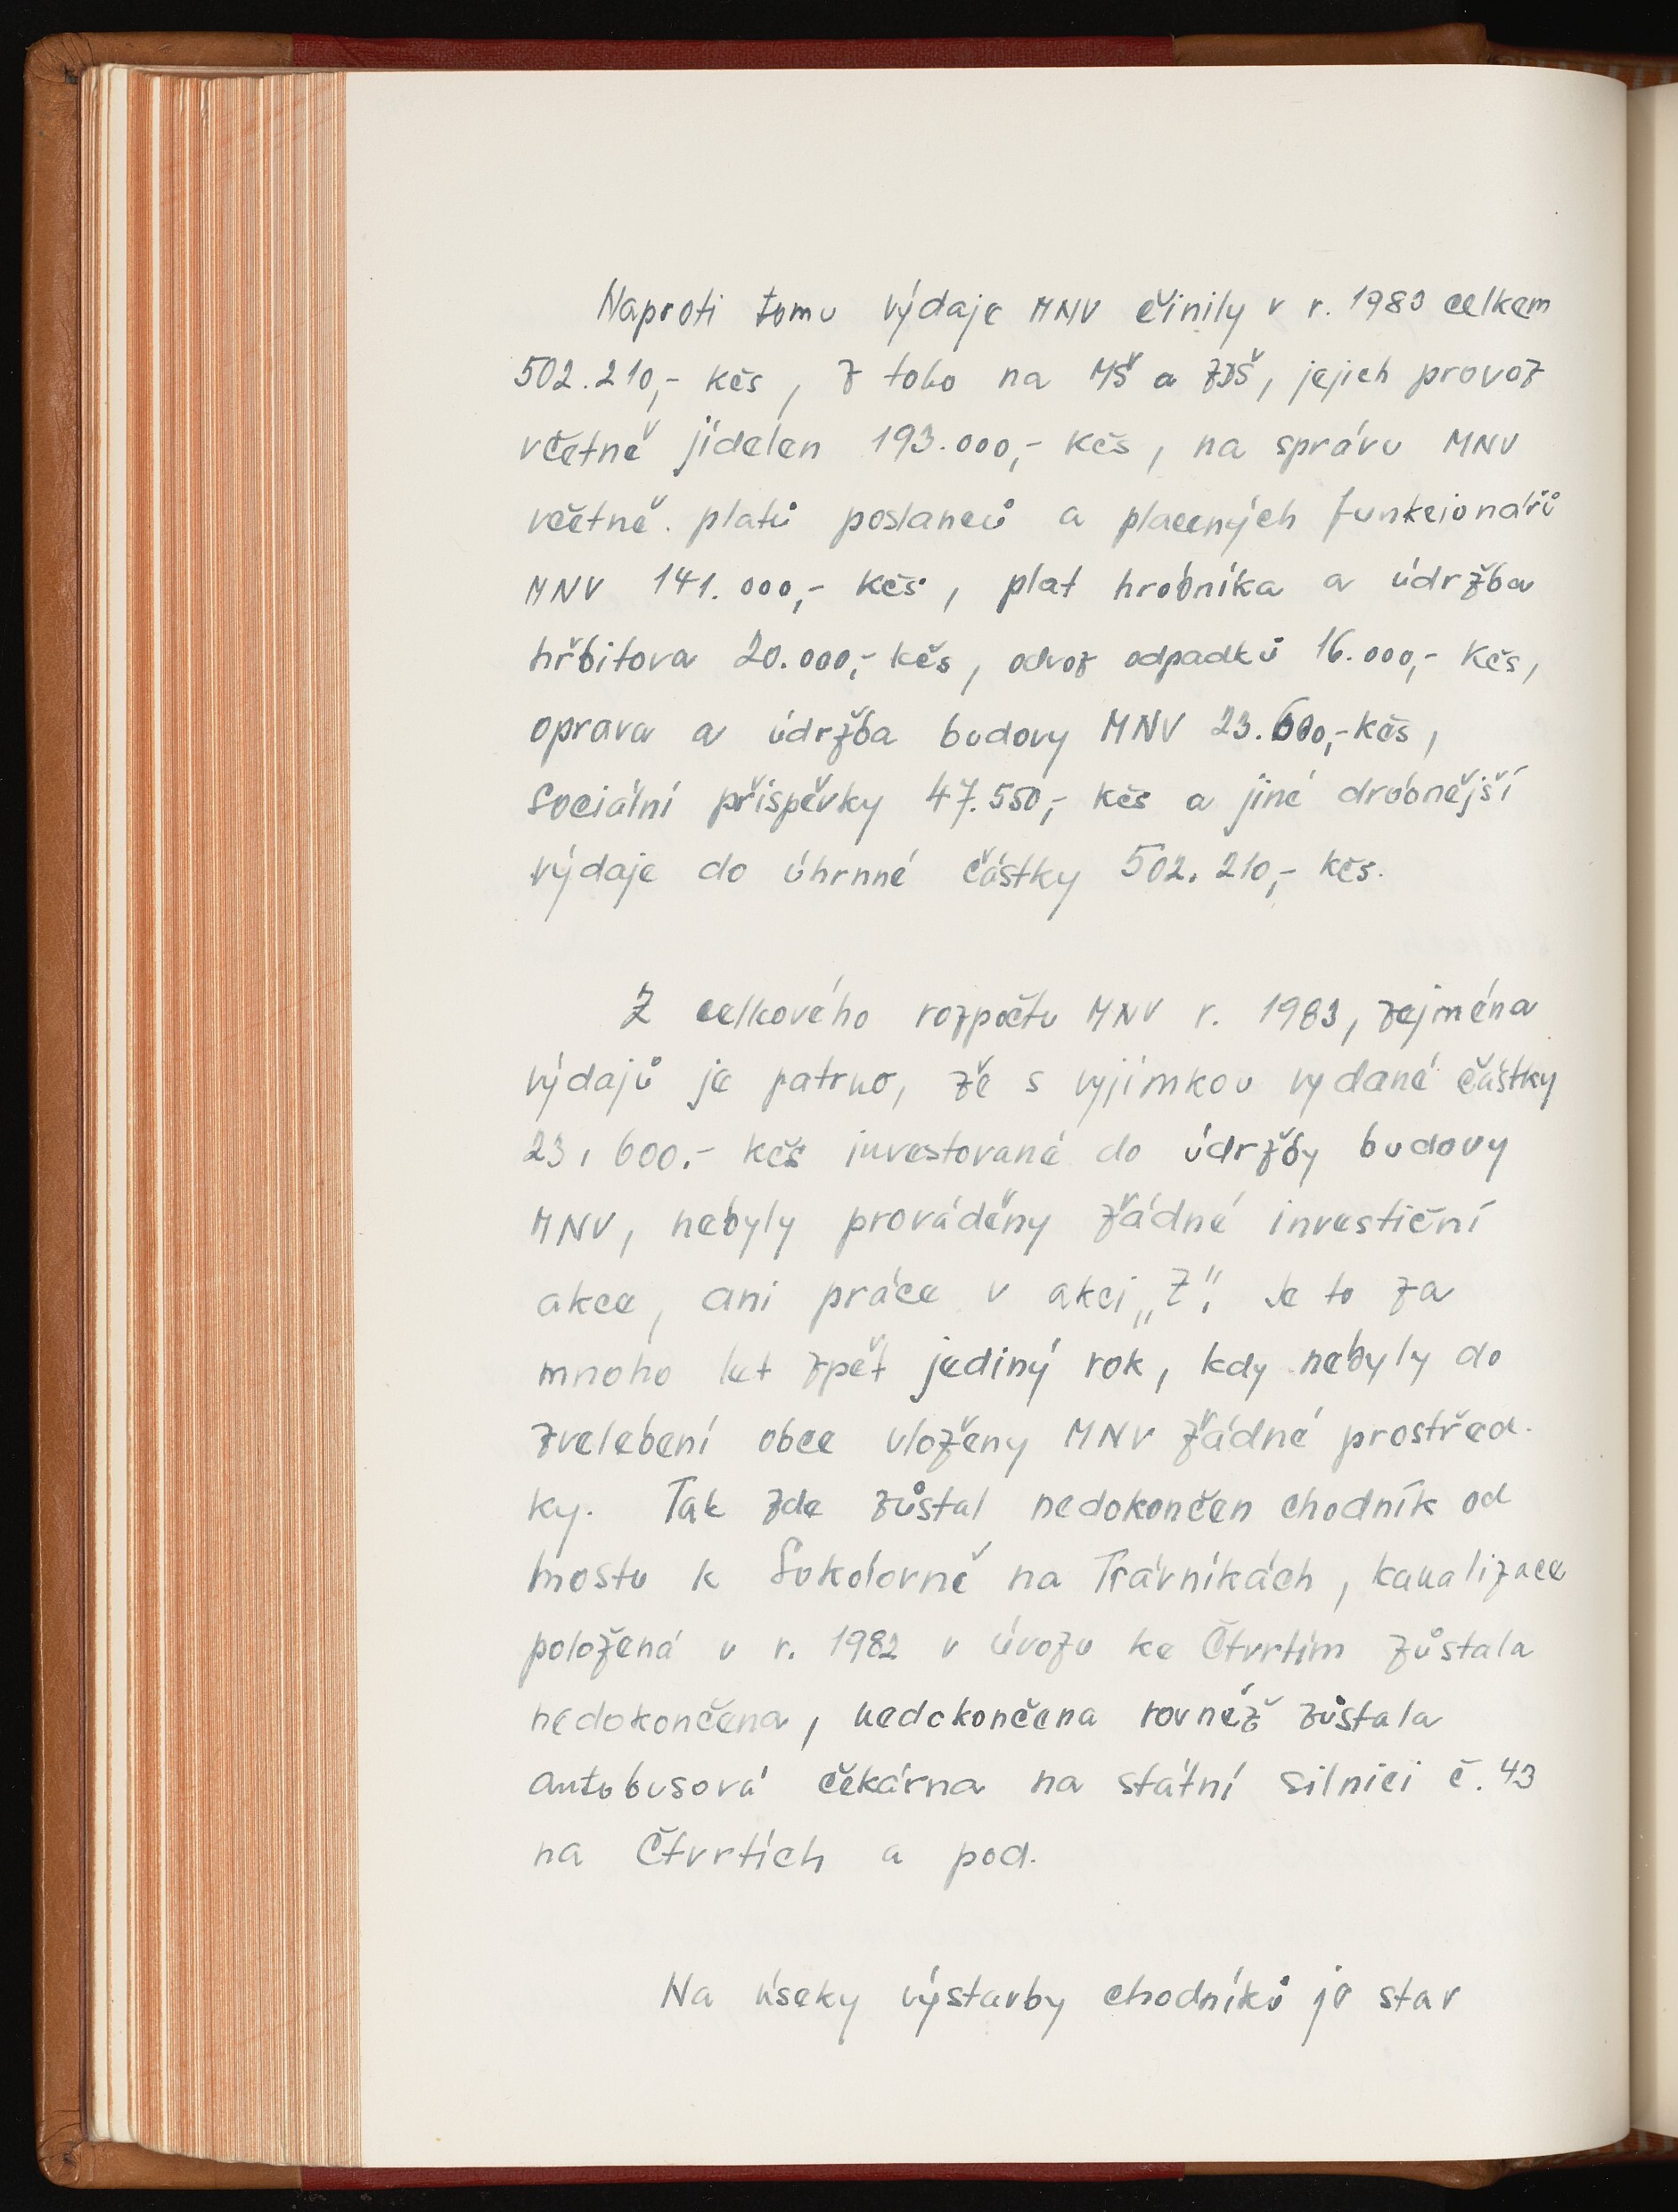 Naproti tomu výdaje MNV činily v r. 1983 celkem
502.210,- kčs, z toho na MŠ a ZDŠ, jejich provoz
včetně jídelen 193.000,- kčs, na správu MNV
včetně platů poslanců a placených funkcionářů
MNV 141.000,- kčs, plat hrobníka a údržba
hřbitova 20.000,- kčs, odvoz odpadků 16.000,- kčs,
oprava a údržba budovy MNV 23.600,- kčs,
Sociální příspěvky 47.550,- kčs a jiné drobnější
výdaje do úhrnné částky 502.210,- kčs.
Z celkového rozpočtu MNV r. 1983, zejména
výdajů je patrno, že s vyjímkou vydané částky
23,600.- kčs investované do údržby budovy
MNV, nebyly prováděny žádné investiční
akce, ani práce v akci „Z". Je to za
mnoho let zpět jediný rok, kdy nebyly do
zvelebení obce vloženy MNV žádné prostřed-
ky. Tak zde zůstal nedokončen chodník od
mostu k Sokolovně na Trávníkách, kanalizace
položená v r. 1982 v úvozu ke Čtvrtím zůstala
nedokončena, nedokončena rovněž zůstala
autobusová čekárna na státní silnici č. 43
na Čtvrtích a pod.
Na úseky výstavby chodníků je stav